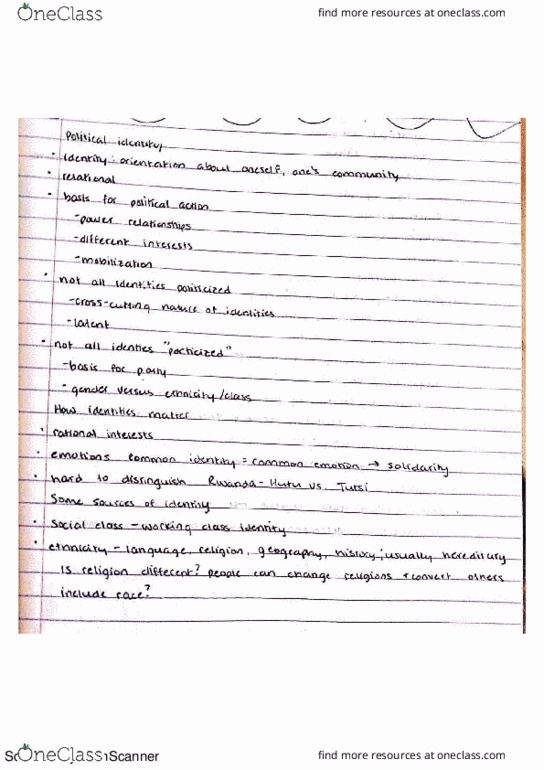 OneClass
find more resources at oneclass.com
Political identity
• identity: orientation about oneself, one's community
• relational
• basis for political action
-power relationships
-different interests
-mobilization
• not all identities politicized
-cross-cutting nature of identities
-latent
• not all identities "particized"
-basis for party
- gender versus ethnicity/class
How identities matter
• rational interests
• emotions common identity = common emotion → solidarity
• hard to distinguish Rwanda - Hutu vs. Tutsi
Some sources of identity
• Social class - working class identity
• ethnicity - language, religion, geography, history; usually hereditary
Is religion different? people can change religions + convert others
include race?
OneClass
Scanner
find more resources at oneclass.com